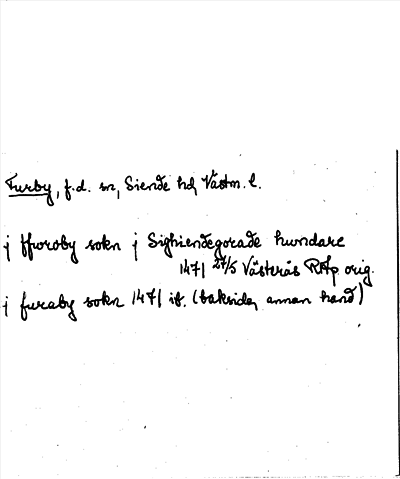 Furby, f.d. sn, Siende hd, Västm. l.
j ffuroby sokn j Sighiendegorade hundare
1471 27/5 Västerås RAp orig.
j furaby sokn 1471 ib. (baksida, annan hand)